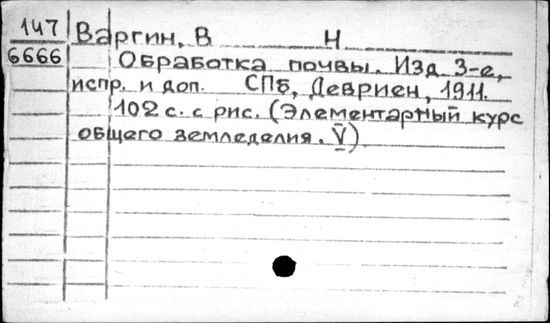 147 Варгин, В Н
6666 Обработка почвы. Изд. 3-е,
испр. и доп. СПб, Девриен, 1911.
102 с. с рис. (Элементарный курс
общего земледелия. V)